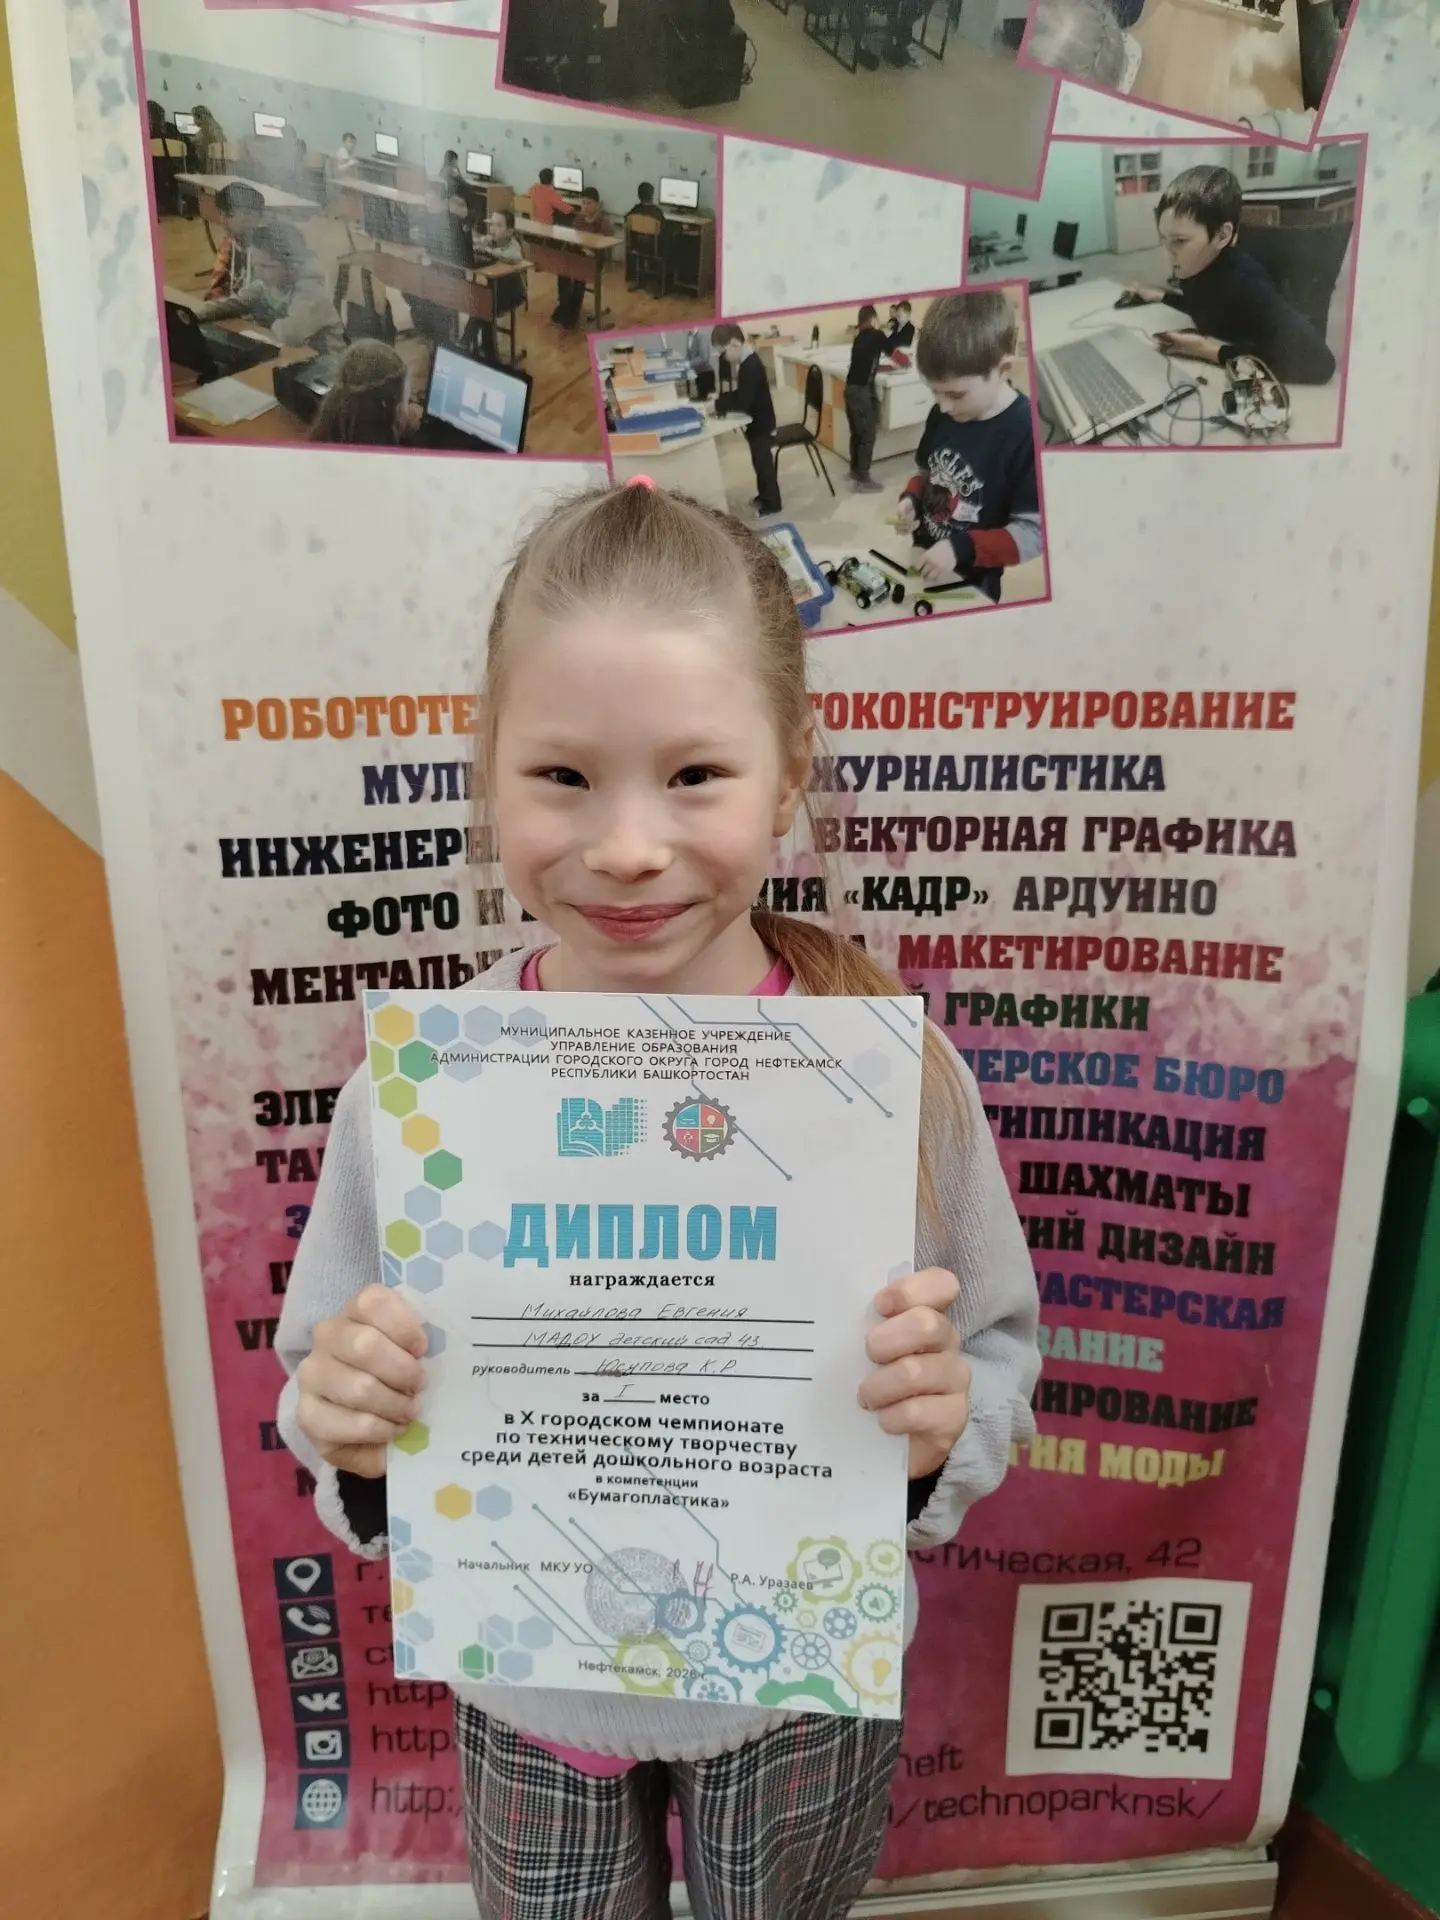 РОБОТОТЕ ТОКОНСТРУИРОВАНИЕ
МУЛЬ ЖУРНАЛИСТИКА
ИНЖЕНЕРН ВЕКТОРНАЯ ГРАФИКА
ФОТО И ИЯ «КАДР» АРДУИНО
МЕНТАЛЬН А МАКЕТИРОВАНИЕ
Й ГРАФИКИ
НЕРСКОЕ БЮРО
ЭЛЕ ТИПЛИКАЦИЯ
ТА ШАХМАТЫ
КИЙ ДИЗАЙН
МАСТЕРСКАЯ
ВАНИЕ
ИРОВАНИЕ
ГИЯ МОДЫ
г. стическая, 42
те
http
http:
http: neft
/technoparknsk/
МУНИЦИПАЛЬНОЕ КАЗЕННОЕ УЧРЕЖДЕНИЕ
УПРАВЛЕНИЕ ОБРАЗОВАНИЯ
АДМИНИСТРАЦИИ ГОРОДСКОГО ОКРУГА ГОРОД НЕФТЕКАМСК
РЕСПУБЛИКИ БАШКОРТОСТАН
ДИПЛОМ
награждается
Михайлова Евгения
МАДОУ детский сад 43.
руководитель Юсупова К.Р
за I место
в X городском чемпионате
по техническому творчеству
среди детей дошкольного возраста
в компетенции
«Бумагопластика»
Начальник МКУ УО Р.А. Уразаев
Нефтекамск, 2026 г.